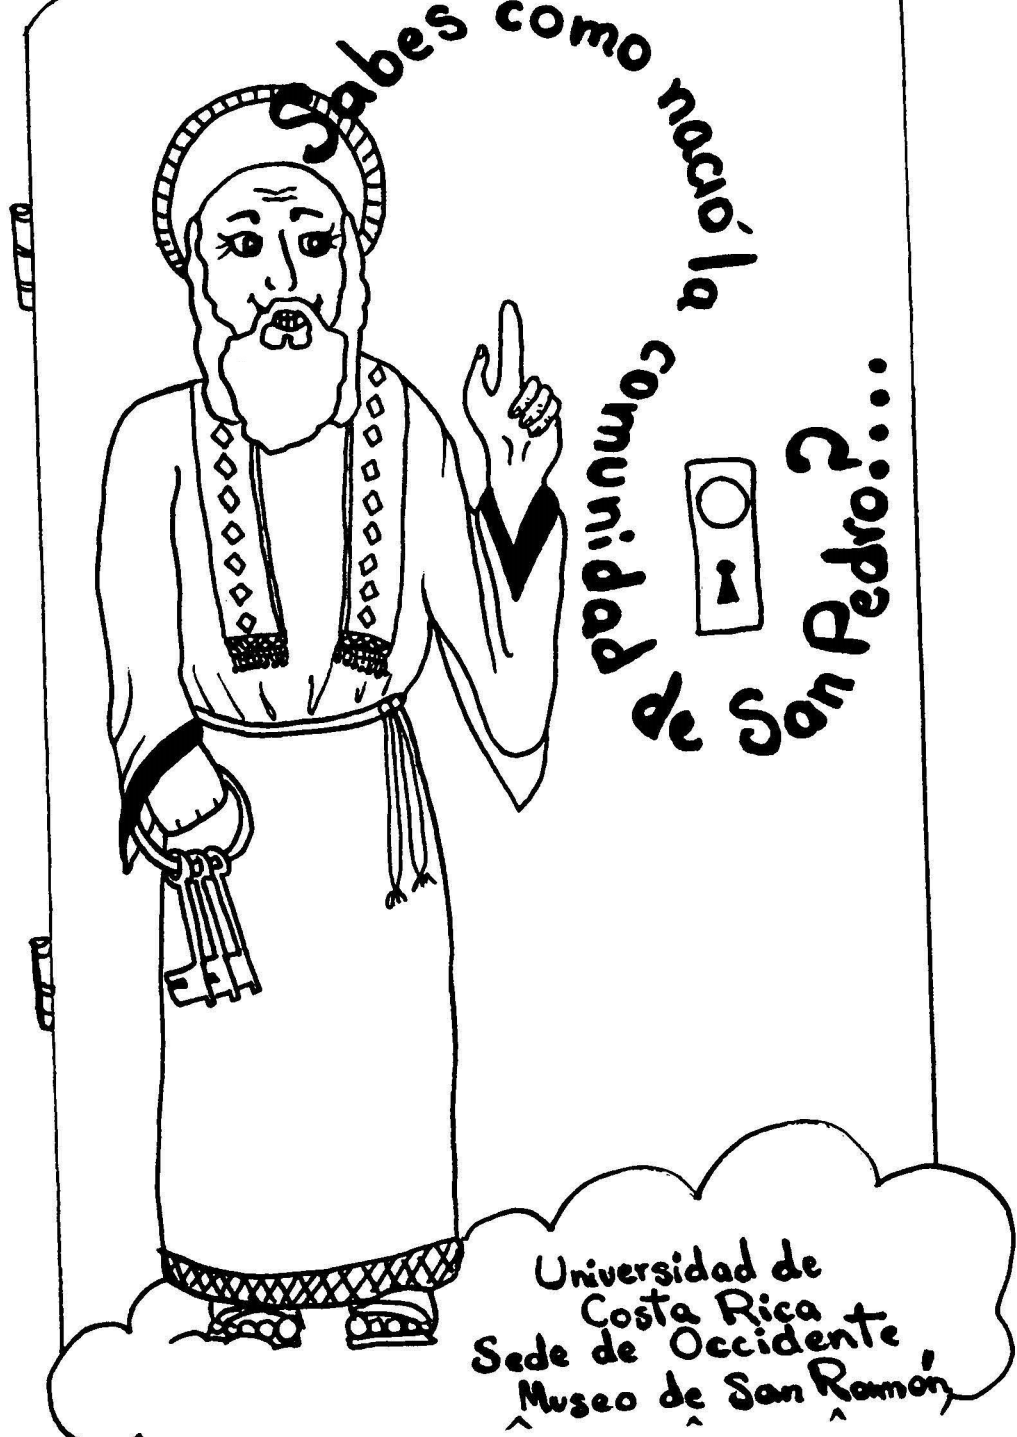 Sabes como nació la comunidad de San Pedro?....
Universidad de
Costa Rica
Sede de Occidente
Museo de San Ramón